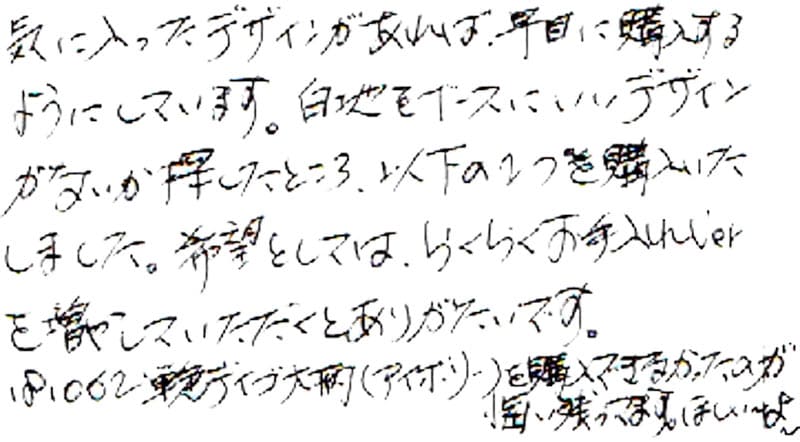 気に入ったデザインがあれば、早目に購入する
ようにしています。白地をベースにいいデザイン
がないか探したところ、以下の2つを購入いた
しました。希望としては、らくらくお手入れver
を増やしていただくとありがたいです。
大柄(アイボリー)を購入できなかったのが
ほしいな〜